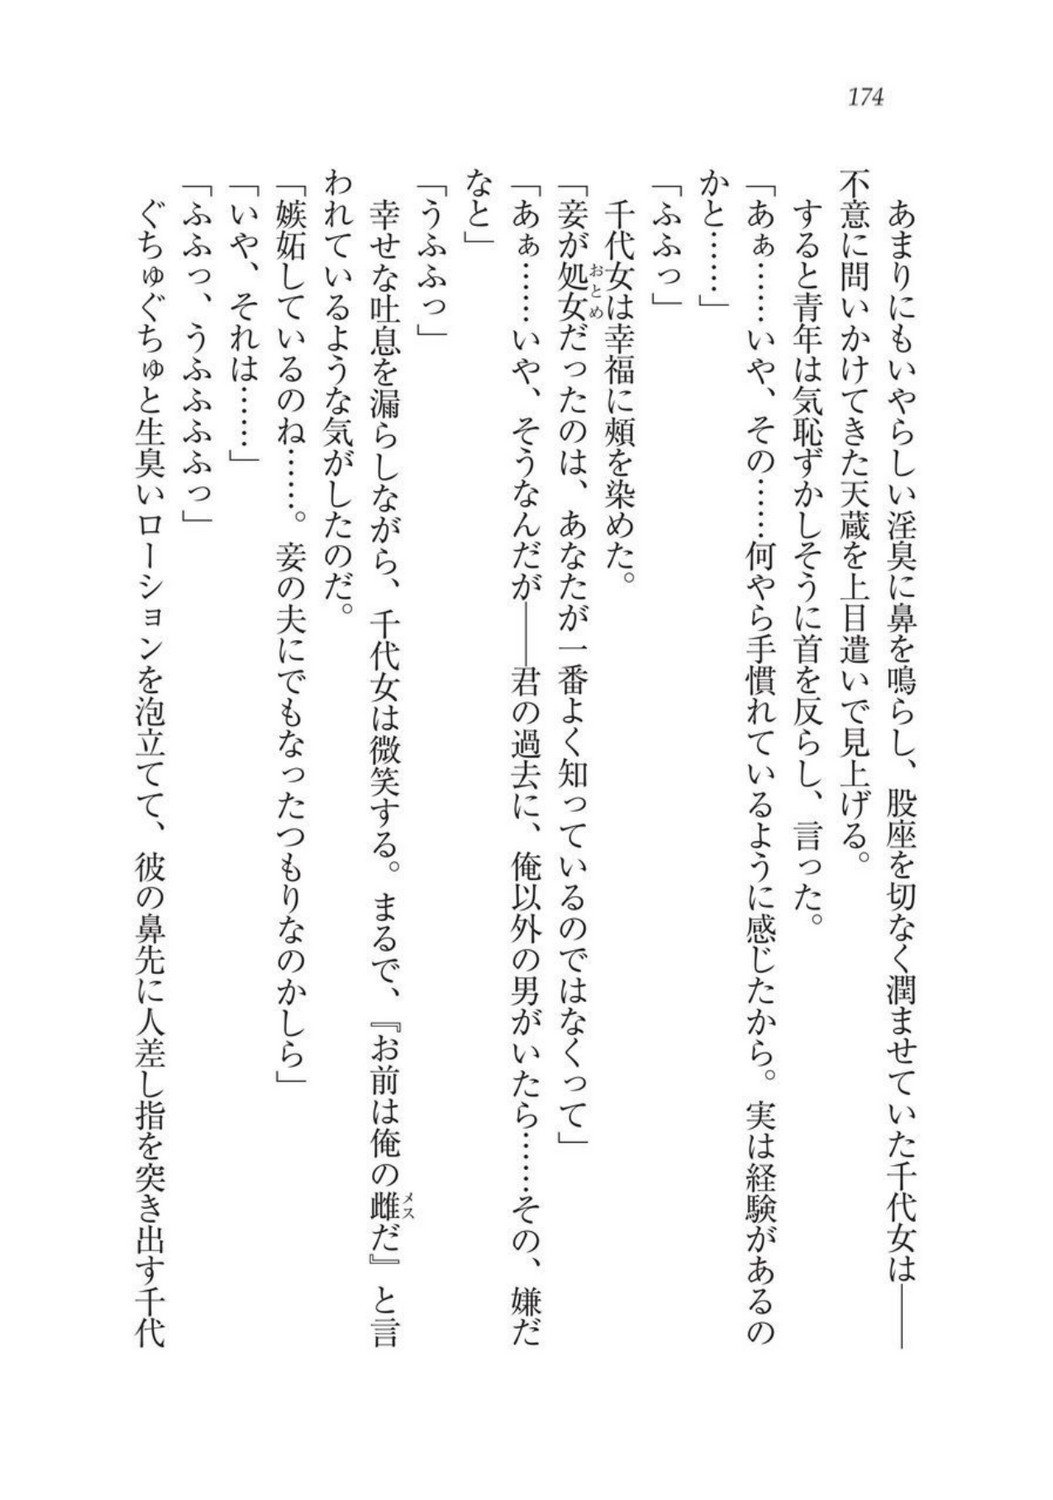 174
あまりにもいやらしい淫臭に鼻を鳴らし、股座を切なく潤ませていた千代女は――
不意に問いかけてきた天蔵を上目遣いで見上げる。
すると青年は気恥ずかしそうに首を反らし、言った。
「あぁ……いや、その……何やら手慣れているように感じたから。実は経験があるの
かと……」
「ふふっ」
千代女は幸福に頰を染めた。
「妾が処女だったのは、あなたが一番よく知っているのではなくって」
おとめ
「あぁ……いや、そうなんだが――君の過去に、俺以外の男がいたら……その、嫌だ
なと」
「うふふっ」
幸せな吐息を漏らしながら、千代女は微笑する。まるで、『お前は俺の雌だ』と言
メス
われているような気がしたのだ。
「嫉妬しているのね……。妾の夫にでもなったつもりなのかしら」
「いや、それは……」
「ふふっ、うふふふふっ」
ぐちゅぐちゅと生臭いローションを泡立てて、彼の鼻先に人差し指を突き出す千代